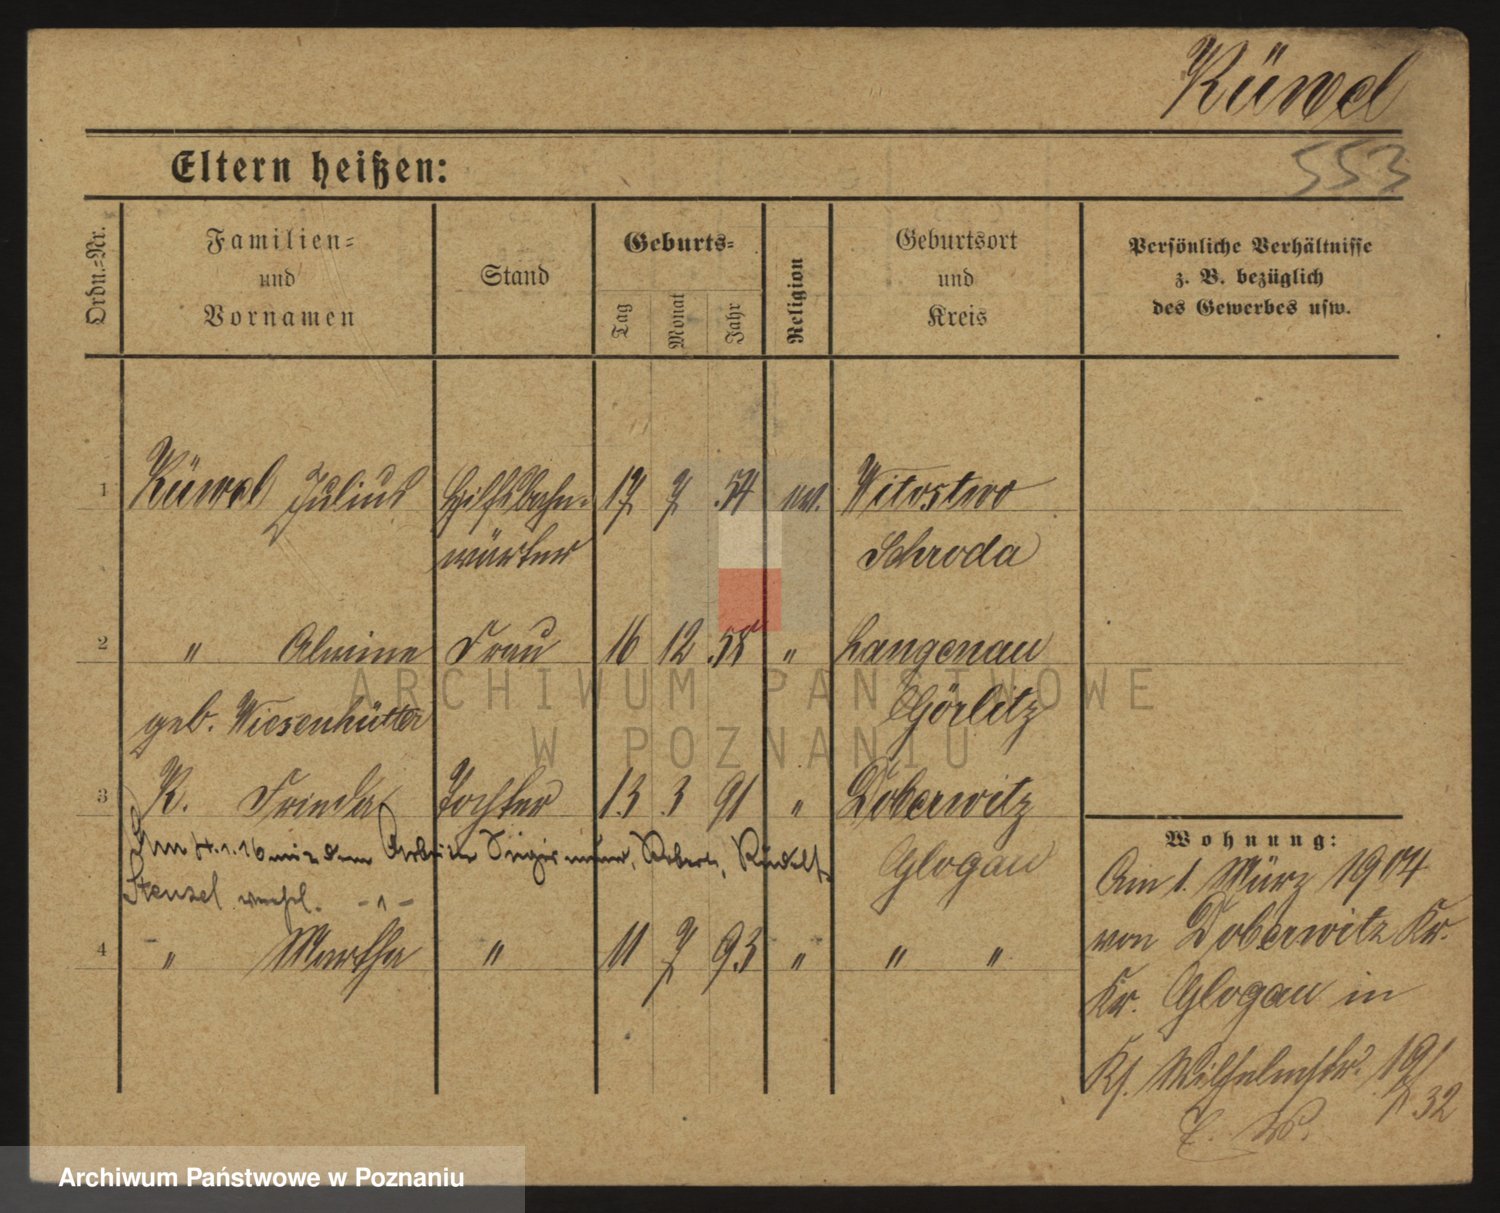 Küwel
553
Eltern heißen:
Ordn.=Nr.
Familien=
und
Vornamen
Stand
Geburts=
Tag
Monat
Jahr
Religion
Geburtsort
und
Kreis
Persönliche Verhältnisse
z. B. bezüglich
des Gewerbes usw.
1 Küwel Julius Hilfsbahn= 17 7 54 ev. Witostwo
wärter Schroda
2 " Alwine Frau 16 12 58 " Langenau
geb. Wiesenhütter Görlitz
3 K. Frieda Tochter 13 3 91 " Doberwitz
Am 4.1.16 mit dem Arbeiter Robert, Rudolf
Glogau
Stenzel verehel.
4 " Martha " 11 7 93 " " "
Wohnung:
Am 1. März 1904
von Doberwitz Kr.
Kr. Glogau in
Wilhelmstr.
32
ARCHIWUM PAŃSTWOWE
W POZNANIU
Archiwum Państwowe w Poznaniu